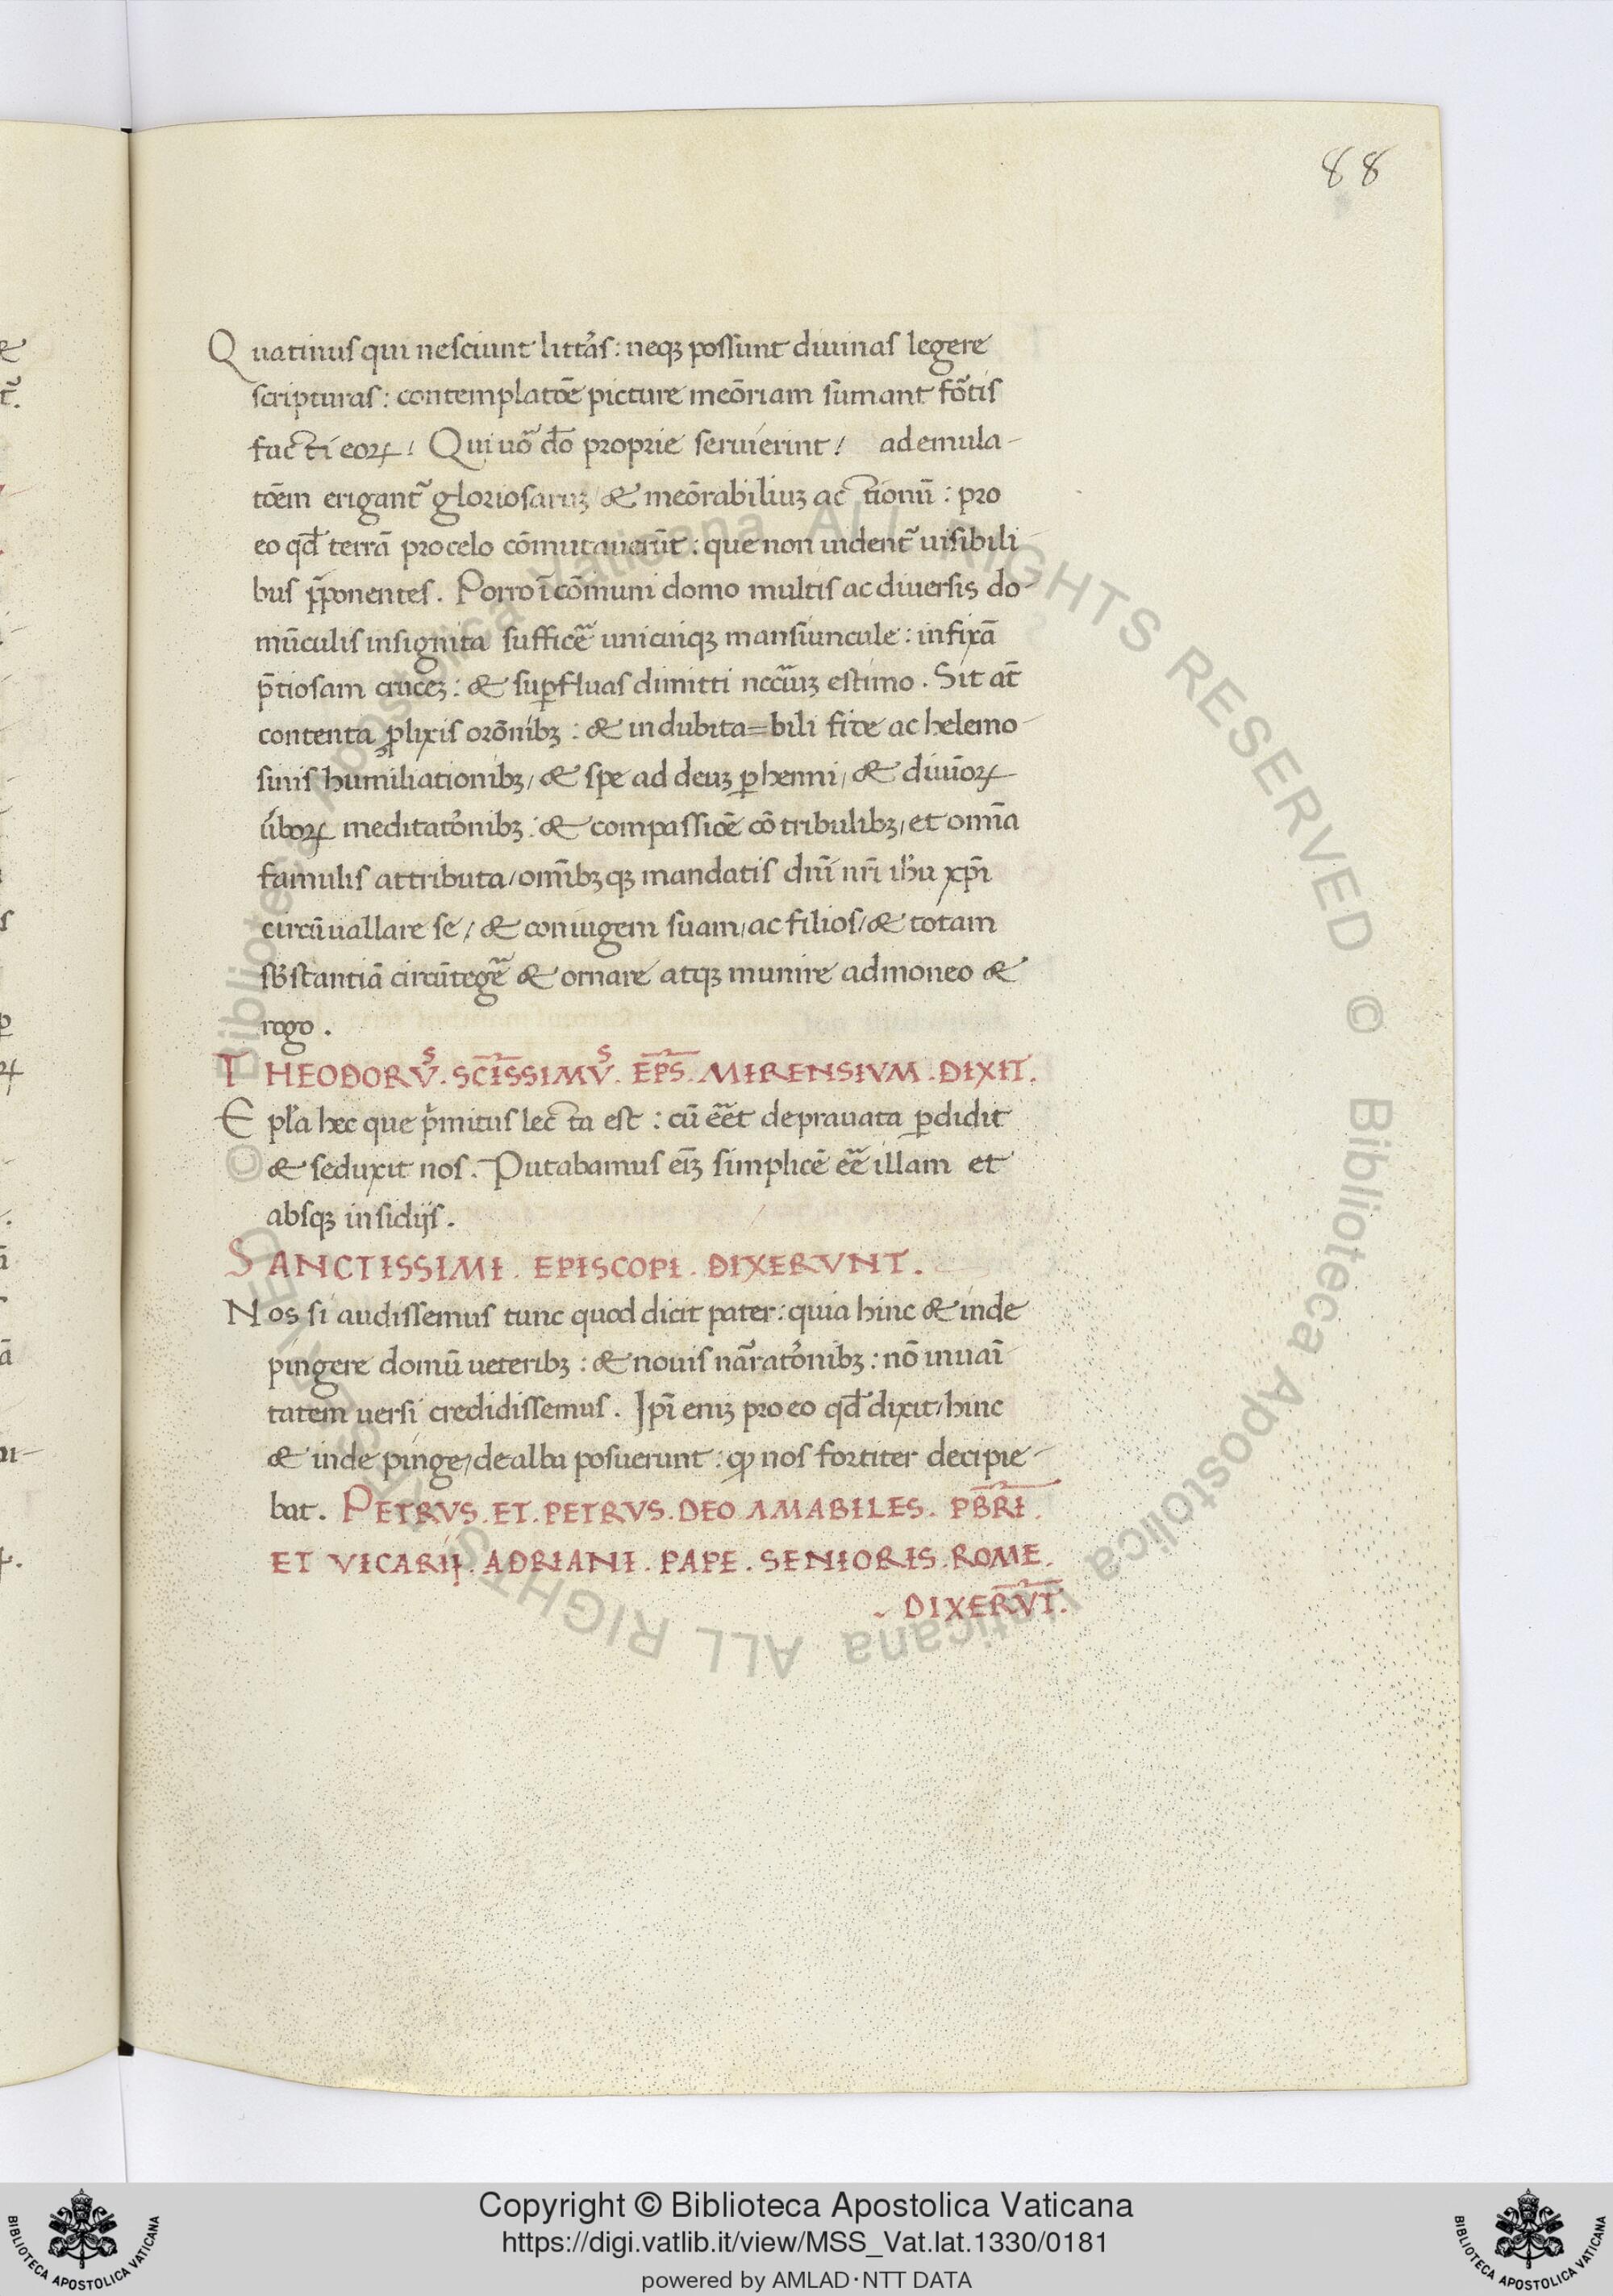 88
Quatinus qui nesciunt litt̃as: neqꝫ possunt diuinas legere
scripturas: contemplatōe picture meōriam sumant fōtis
facti eoꝝ: Qui uō dō proprie seruierint: ad emula-
tōem erigant̃ gloriosaruꝫ & meōrabiliuꝫ actionū: pro
eo qd̄ terrā pro celo cōmutauerūt: que non uident̃ uisibili-
bus p̄ponentes. Porro ī cōmuni domo multis ac diuersis do-
mūculis insignita sufficē unicuiqꝫ mansiuncule: infixā
p̄tiosam cruceꝫ: & suꝑfluas dimitti nēcāuꝫ estimo. Sit at̄
contenta ꝓlixis orōnibꝫ: & indubita=bili fide ac helemo-
sinis humiliationibꝫ, & spe ad deuꝫ ꝑhenni, & diuīoꝝ
liboꝝ meditatōnibꝫ: & compassiōe cōtribulibꝫ, et omīa
famulis attributa, omībꝫqꝫ mandatis dnī nrī ihu xpī
circūuallare se, & coniugem suam, ac filios, & totam
sb̄stantiā circūtegē & ornare atqꝫ munire admoneo &
rogo.
THEODORVˢ. SCĪSSIMVˢ. EPS̄. MIRENSIVM. DIXIT.
Epl̄a hec que pⁱmitus lecta est: cū eēt deprauata ꝑdidit
& seduxit nos. Putabamus eīꝫ simplicē eē illam et
absqꝫ insidijs.
SANCTISSIMI. EPISCOPI. DIXERVNT.
Nos si audissemus tunc quod dicit pater: quia hinc & inde
pingere domū ueteribꝫ: & nouis nar̃ratōnibꝫ: nō inuāi
tatem uersi credidissemus. Ipī eniꝫ pro eo qd̄ dixit, hinc
& inde pinge, dealba posuerunt: ꝙ nos fortiter decipie-
bat. PETRVS. ET. PETRVS. DEO AMABILES. PBR̄I.
ET VICARIJ. ADRIANI. PAPE. SENIORIS. ROME.
DIXERVT̄.
Copyright © Biblioteca Apostolica Vaticana
https://digi.vatlib.it/view/MSS_Vat.lat.1330/0181
powered by AMLAD·NTT DATA
BIBLIOTECA APOSTOLICA VATICANA
BIBLIOTECA APOSTOLICA VATICANA
© Biblioteca Apostolica Vaticana ALL RIGHTS RESERVED © Biblioteca Apostolica Vaticana ALL RIGHTS RESERVED